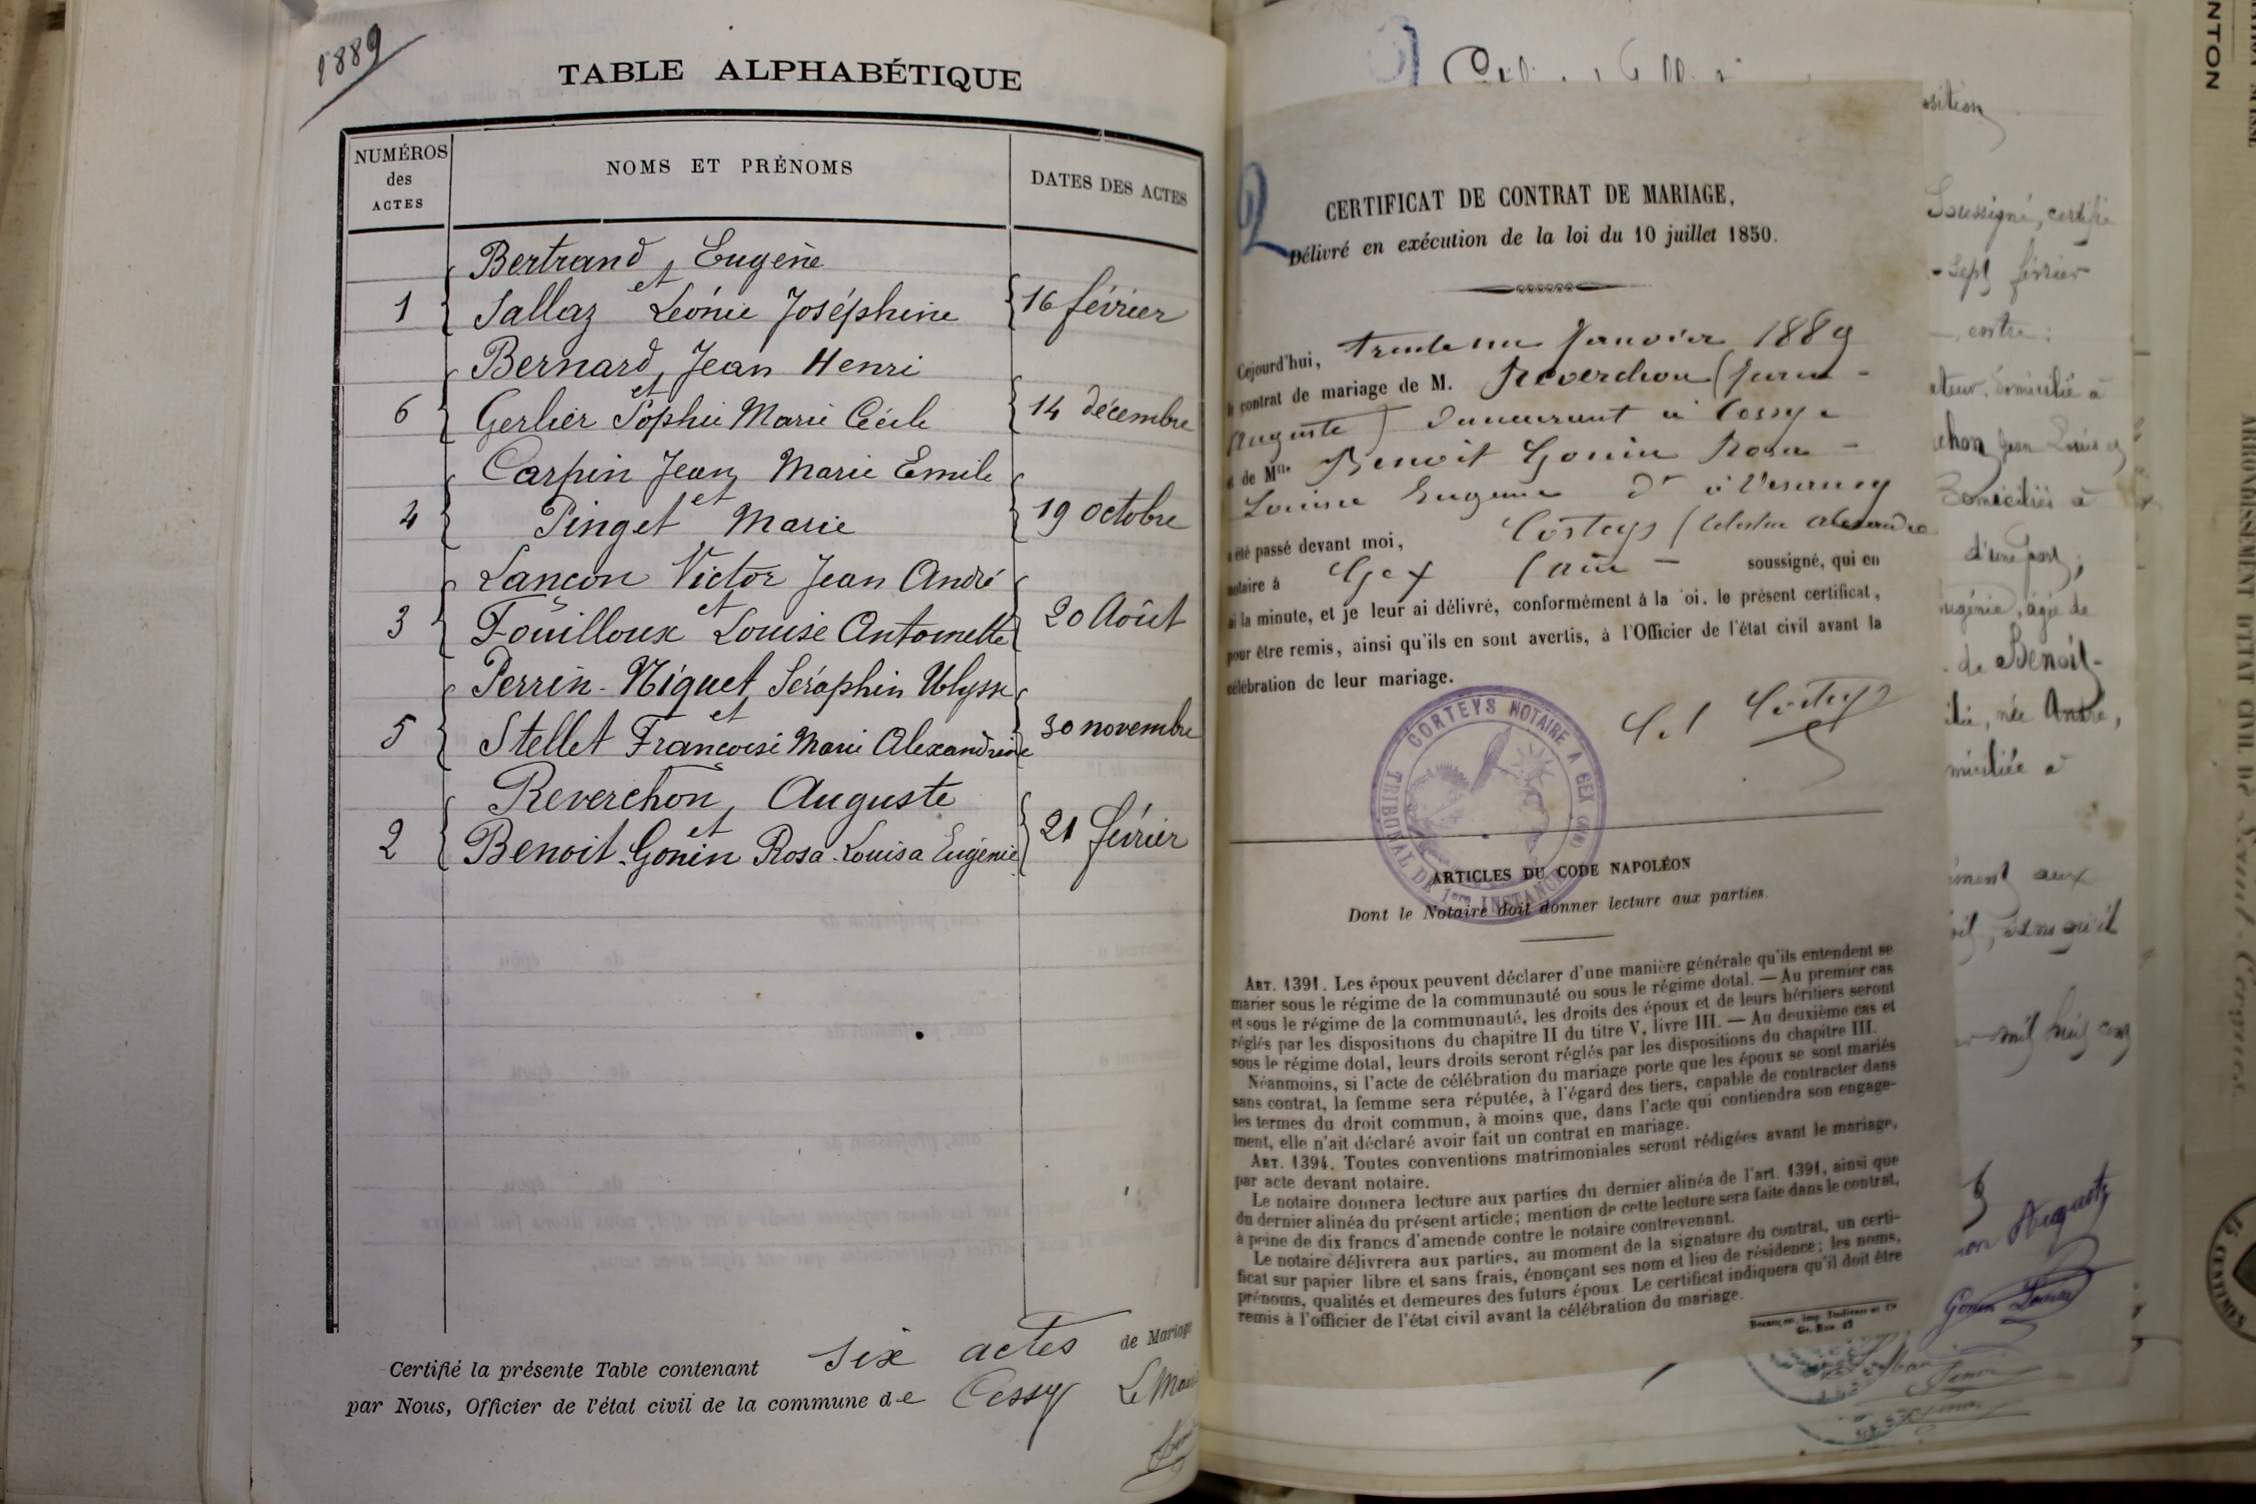 1889
TABLE ALPHABÉTIQUE
NUMÉROS des ACTES
NOMS ET PRÉNOMS
DATES DES ACTES
Bertrand, Eugène
et
1 Sallaz Léonie Joséphine 16 février
Bernard, Jean Henri
et
6 Gerlier Sophie Marie Cécile 14 décembre
Carpin Jean Marie Emile
et
4 Pinget Marie 19 octobre
Lançon Victor Jean André
et
3 Fouilloux Louise Antoinette 20 Août
Perrin-Niquet Séraphin Ulysse
et
5 Stellet Françoise Marie Alexandrine 30 novembre
Reverchon, Auguste
et
2 Benoit-Gonin Rosa Louisa Eugénie 21 février
Certifié la présente Table contenant six actes de Mariage
par Nous, Officier de l'état civil de la commune de Cessy Le Maire
2
CERTIFICAT DE CONTRAT DE MARIAGE,
Délivré en exécution de la loi du 10 juillet 1850.
Cejourd'hui, trente un Janvier 1889
contrat de mariage de M. Reverchon (
Auguste) demeurant à Cessy
de Mlle Benoit Gonin Rosa
Louisa Eugénie Dt à Vesancy
été passé devant moi, Corteys (Célestin Alexandre
notaire à Gex (Ain soussigné, qui en
ai la minute, et je leur ai délivré, conformément à la loi, le présent certificat,
pour être remis, ainsi qu'ils en sont avertis, à l'Officier de l'état civil avant la
célébration de leur mariage.
Corteys
CORTEYS NOTAIRE A GEX (AIN)
TRIBUNAL DE 1ère INSTANCE
ARTICLES DU CODE NAPOLÉON
Dont le Notaire doit donner lecture aux parties.
ART. 1391. Les époux peuvent déclarer d'une manière générale qu'ils entendent se
marier sous le régime de la communauté ou sous le régime dotal. — Au premier cas
et sous le régime de la communauté, les droits des époux et de leurs héritiers seront
réglés par les dispositions du chapitre II du titre V, livre III. — Au deuxième cas et
sous le régime dotal, leurs droits seront réglés par les dispositions du chapitre III.
Néanmoins, si l'acte de célébration du mariage porte que les époux se sont mariés
sans contrat, la femme sera réputée, à l'égard des tiers, capable de contracter dans
les termes du droit commun, à moins que, dans l'acte qui contiendra son engage-
ment, elle n'ait déclaré avoir fait un contrat en mariage.
ART. 1394. Toutes conventions matrimoniales seront rédigées avant le mariage,
par acte devant notaire.
Le notaire donnera lecture aux parties du dernier alinéa de l'art. 1391, ainsi que
du dernier alinéa du présent article; mention de cette lecture sera faite dans le contrat,
à peine de dix francs d'amende contre le notaire contrevenant.
Le notaire délivrera aux parties, au moment de la signature du contrat, un certi-
ficat sur papier libre et sans frais, énonçant ses nom et lieu de résidence; les noms,
prénoms, qualités et demeures des futurs époux. Le certificat indiquera qu'il doit être
remis à l'officier de l'état civil avant la célébration du mariage.
Soussigné, certifie
Sept février
entre:
domicilié à
chon Jean Louis
domiciliés à
d'une part;
Eugénie, âgée de
de Benoit-
née André,
miciliée à
aux
mil huit cent
Auguste
Gonin Louisa
NTON
ARRONDISSEMENT D'ÉTAT CIVIL DE